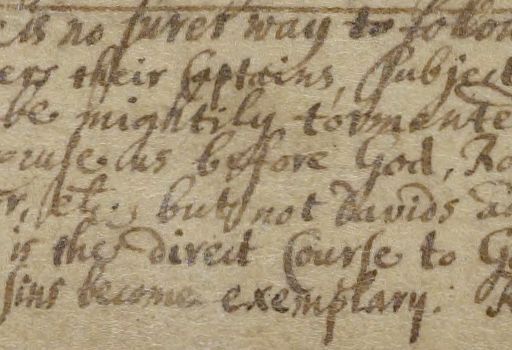 is no surer way to follow
ers their Captains, Subject
be mightily tormente
cuse us before God, Ro
r, etc, but not Davids ad
is the direct Course to Go
sins become exemplary.